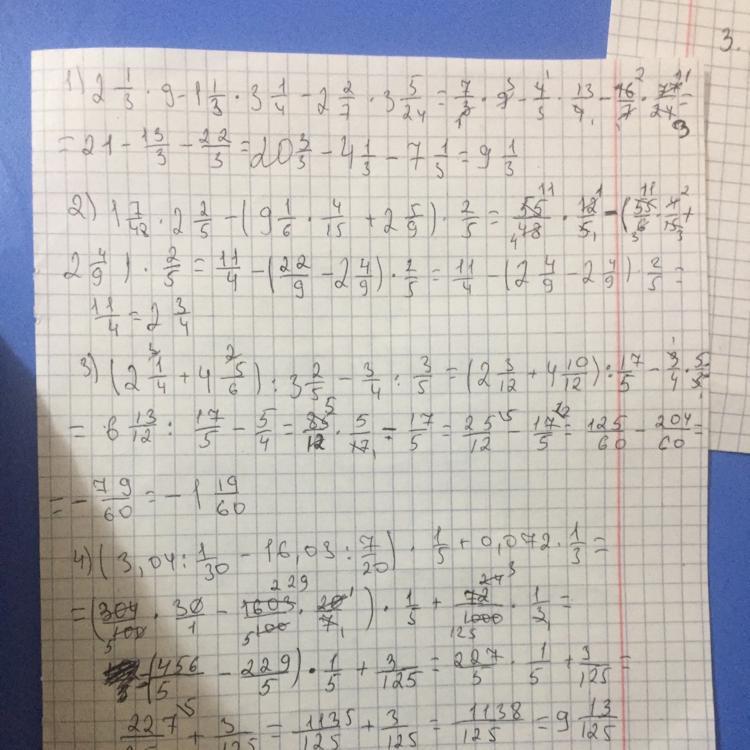 3.
1) 2 1/3 · 9 - 1 1/3 · 3 1/4 - 2 2/7 · 3 5/24 = 7/3 · 9 - 4/3 · 13/4 - 16/7 · 77/24 =
= 21 - 13/3 - 22/3 = 20 3/3 - 4 1/3 - 7 1/3 = 9 1/3
2) 1 7/48 · 2 2/5 - (9 1/6 · 4/15 + 2 5/9) · 2/5 = 55/48 · 12/5 - (55/6 · 4/15 +
2 4/9) · 2/5 = 11/4 - (22/9 - 2 4/9) · 2/5 = 11/4 - (2 4/9 - 2 4/9) · 2/5 =
11/4 = 2 3/4
3) (2 1/4 + 4 5/6) : 3 2/5 - 3/4 : 3/5 = (2 3/12 + 4 10/12) : 17/5 - 3/4 · 5/3
= 6 13/12 : 17/5 - 5/4 = 85/12 · 5/17 - 17/5 = 25/12 - 17/5 = 125/60 - 204/60 =
= - 79/60 = - 1 19/60
4) (3,04 : 1/30 - 16,03 : 7/20) · 1/5 + 0,072 · 1/3 =
= (304/100 · 30/1 - 1603/100 · 20/7) · 1/5 + 72/1000 · 1/3 =
(456/5 - 229/5) · 1/5 + 3/125 = 227/5 · 1/5 + 3/125 =
227/25 + 3/125 = 1135/125 + 3/125 = 1138/125 = 9 13/125